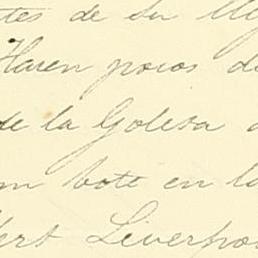 tes de su
Hacen pocos d
de la Goleta
un bote en la
bert Liverpoo